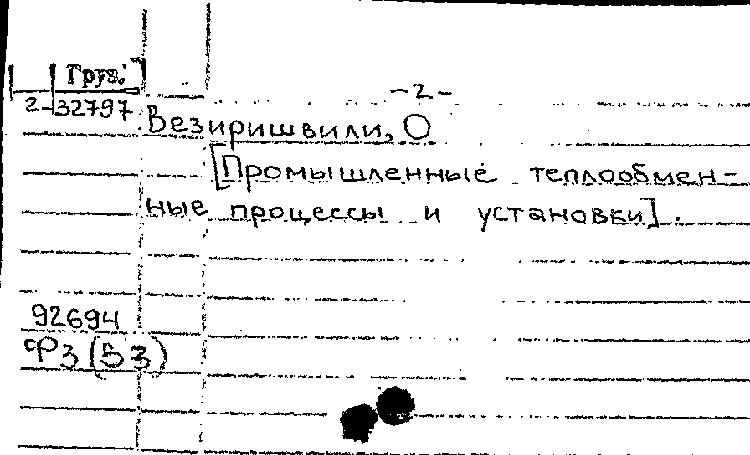 Груз.
-2-
2-32797
Везиришвили, О
[Промышленные теплообмен-
ные процессы и установки].
92694
Ф3(53)